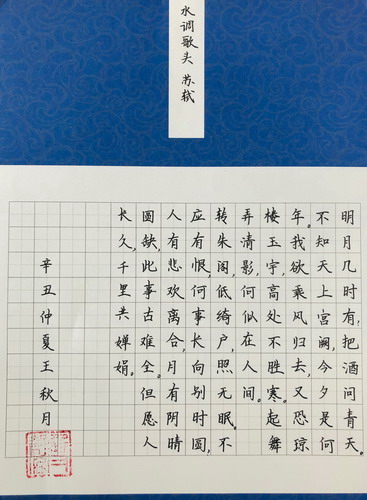 水调歌头 苏轼
明月几时有,把酒问青天。
不知天上宫阙,今夕是何
年。我欲乘风归去,又恐琼
楼玉宇,高处不胜寒。起舞
弄清影,何似在人间。
转朱阁,低绮户,照无眠。不
应有恨,何事长向别时圆,
人有悲欢离合,月有阴晴
圆缺,此事古难全。但愿人
长久,千里共婵娟。
辛丑仲夏王秋月